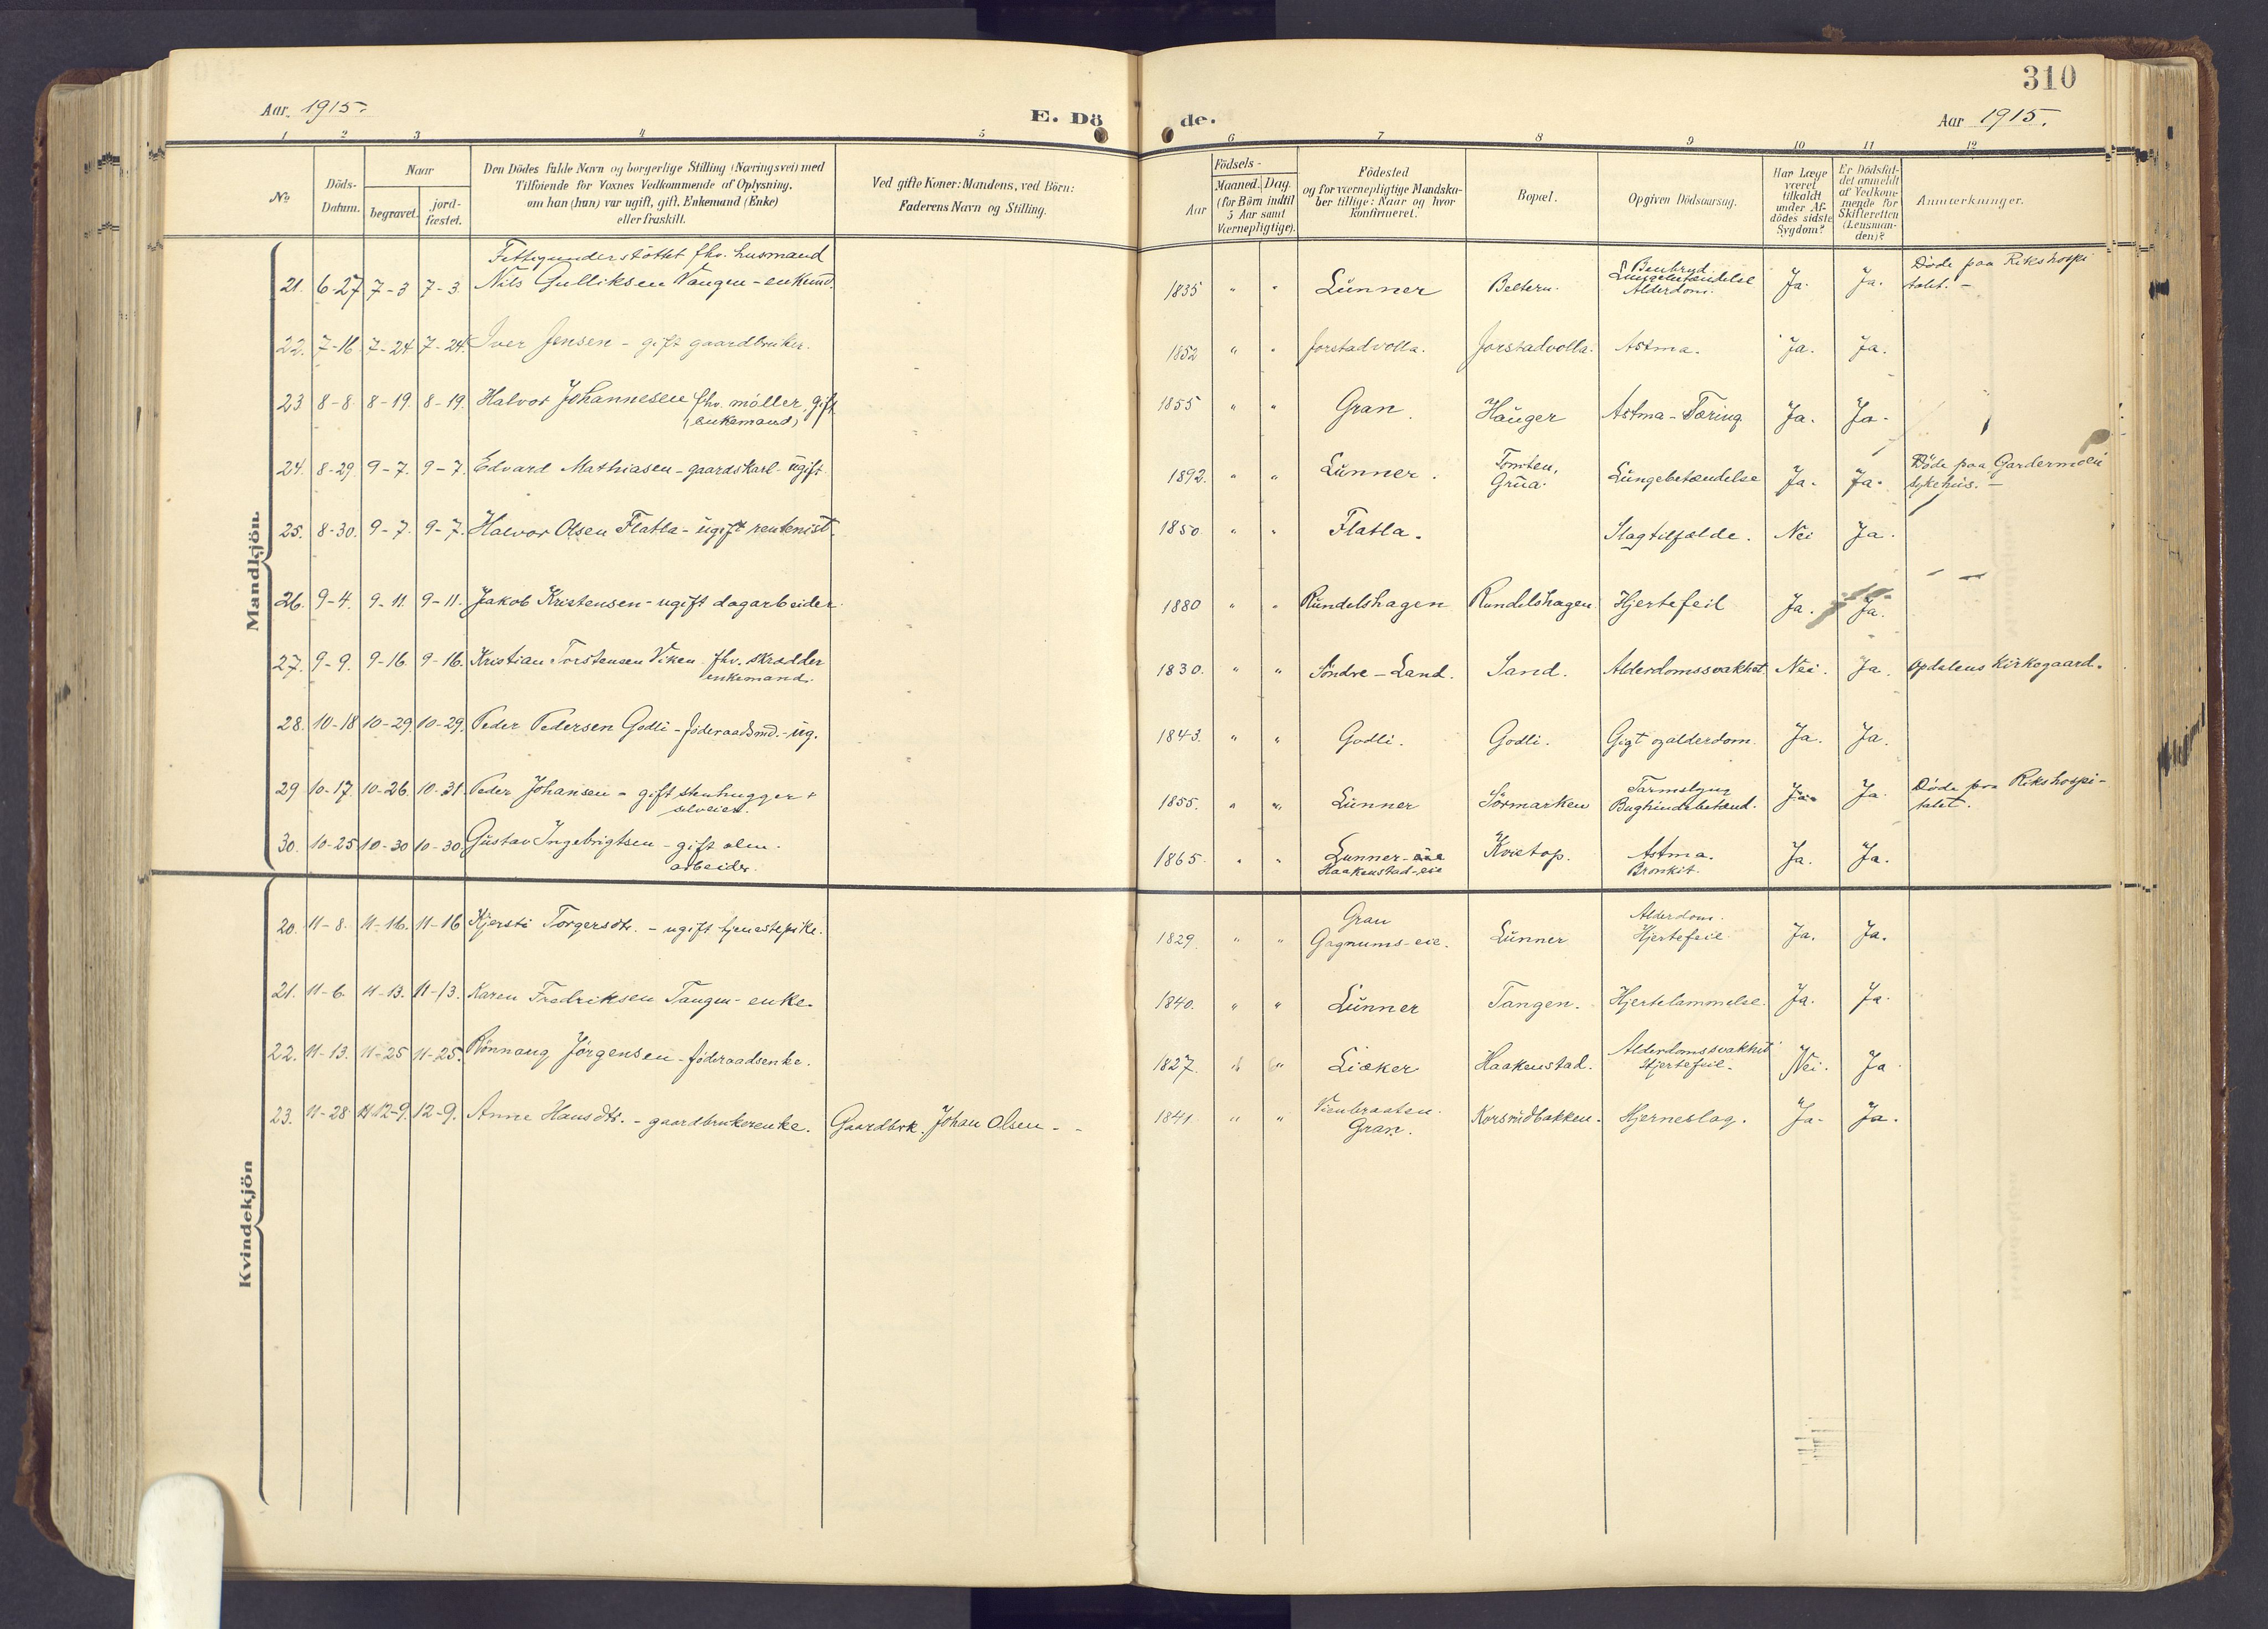 310
Aar. 1915.
E. Dö de.
Aar 1915.
1 2 3 4 5 6 7 8 9 10 11 12
No.
Döds-Datum.
Naar
begravet.
jord-fæstet.
Den Dödes fulde Navn og borgerlige Stilling (Næringsvei) med
Tilföiende for Voxnes Vedkommende af Oplysning,
om han (hun) var ugift, gift, Enkemand (Enke)
eller fraskilt.
Ved gifte Koner: Mandens, ved Börn:
Faderens Navn og Stilling.
Födsels-
Aar
Maaned. Dag.
(for Börn indtil
5 Aar samt
Værnepligtige).
Födested
og for værnepligtige Mandska-
ber tillige: Naar og hvor
konfirmeret.
Bopæl.
Opgiven Dödsaarsag.
Har Læge
været
tilkaldt
under Af-
dödes sidste
Sygdom?
Er Dödsfal-
det anmeldt
af Vedkom-
mende for
Skifteretten
(Lensman-
den)?
Anmærkninger.
Mandkjön.
Fattigunderstöttet fhv. husmand
21. 6-27 7-3 7-3 Nils Gulliksen Vangen - enkemd. 1835 " " Lunner Beltern. Benbrud Lungebetændelse Alderdom. Ja. Ja. Döde paa Rikshospi
talet. -
22. 7-16 7-24 7-24. Iver Jensen - gift gaardbruker. 1852 " " Jorstadvolla. Jorstadvolla. Astma. Ja. Ja.
23 8-8 8-19. 8-19. Halvor Johannesen fhv. möller. gift 1855 " " Gran. Hauger Astma-Tæring Ja. Ja.
(enkemand)
24. 8-29. 9-7. 9-7. Edvard Mathiasen - gaardskarl - ugift. 1892. " " Lunner. Tomten, Grua. Lungebetændelse Ja. Ja. Döde paa Gardermoen
sykehus. -
25. 8-30. 9-7. 9-7. Halvor Olsen Flatla - ugift rentenist. 1850 " " Flatla. Slagtilfælde. Nei Ja.
26. 9-4. 9-11. 9-11. Jakob Kristensen - ugift dagarbeider. 1880 " " Rundelshagen Rundelshagen. Hjertefeil Ja. Ja.
27. 9-9. 9-16. 9-16. Kristian Torstensen Viken fhv. skrædder 1830. " " Söndre-Land. Sand. Alderdomssvakhet. Nei. Ja. Opdalens Kirkegaard.
enkemand.
28. 10-18 10-29. 10-29. Peder Pedersen Godli - föderaadsmd. - ug. 1843. " " Godli. Godli. Gigt og alderdom. Ja. Ja.
29 10-17. 10-26. 10-31 Peder Johansen - gift stenhugger + 1855. " " Lunner Sörmarken Tarmslyng Bughindebetænd. Ja. Ja. Döde paa Rikshospi-
selveier. talet.
30. 10-25 10-30 10-30 Gustav Ingebrigtsen - gift alm. 1865. " " Lunner-eie Kvietop. Astma. Ja. Ja.
arbeider. Haakenstad-eie Bronkit.
Kvindekjön
20. 11-8. 11-16. 11-16 Kjersti Torgersdtr. - ugift tjenestepike. 1829. " " Gran Gagnums-eie. Lunner Alderdom. Hjertefeil. Ja. Ja.
21. 11-6. 11-13. 11-13. Karen Fredriksen Tangen - enke. 1840. " " Lunner Tangen. Hjertelammelse. Ja. Ja.
22. 11-13. 11-25 11-25. Rönnaug Jörgensen - föderaadsenke. 1827. " " Liaker Haakenstad. Alderdomssvakhet Hjertefeil. Nei. Ja
23. 11-28 12-9. 12-9. Anne Hansdtr. - gaardbrukerenke. Gaardbrk. Johan Olsen - - 1841. " " Vienbraaten. Gran. Korsrudbakken. Hjerneslag. Ja. Ja.